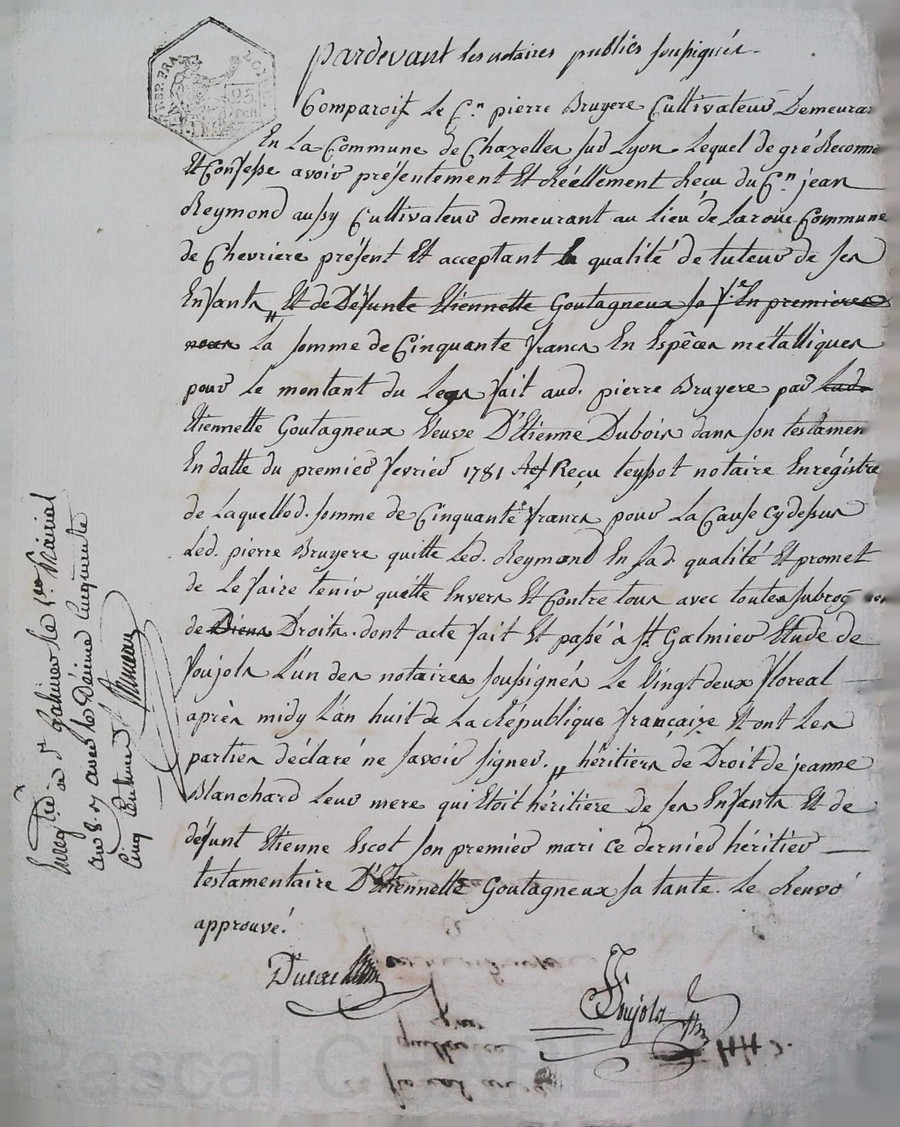 pardevant les notaires publics soussignés.
Comparoit Le C.en pierre Bruyere Cultivateur Demeura
En La Commune de Chazelles sur Lyon Lequel de gré Reconné
Et Confesse avoir présentement Et Réellement Recu du C.en jean
Reymond aussy Cultivateur demeurant au Lieu de Laroue Commune
de Chevriere présent Et acceptant la qualité de tuteur de ses
Enfants Et de Défunte Etiennette Goutagneux sa f.e En premieres
noces La somme de Cinquante francs En Espèces métalliques
pour Le montant du Legs fait aud. pierre Bruyere par Lad.
Etiennette Goutagneux Veuve D'Etienne Dubois dans son testamen
En datte du premier fevrier 1781 Reçu teyssot notaire Enregistré
de Laquelled. somme de Cinquante francs pour La Cause cydessus
Led. pierre Bruyere quitte Led. Reymond En sad. qualité Et promet
de Le faire tenir quitte Envers Et Contre tous avec toute subrog
de Biens Droits. dont acte fait Et passé à St. Galmier Etude de
Poujols L'un des notaires soussignés Le Vingt deux floreal
après midy L'an huit de La République française Et ont Les
parties déclaré ne savoir signer. héritiers de Droit de jeanne
Blanchard Leur mere qui Etoit héritière de ses Enfants Et de
défunt Etienne Escot son premier mari ce dernier héritier
testamentaire D'Etiennette Goutagneux sa tante. Le Renvoi
approuvé.
Poujols
Enreg.tré à St. Galmier le 1.er Prairial
an 8. Reçu avec le Décime Cinquante
Cinq Centimes